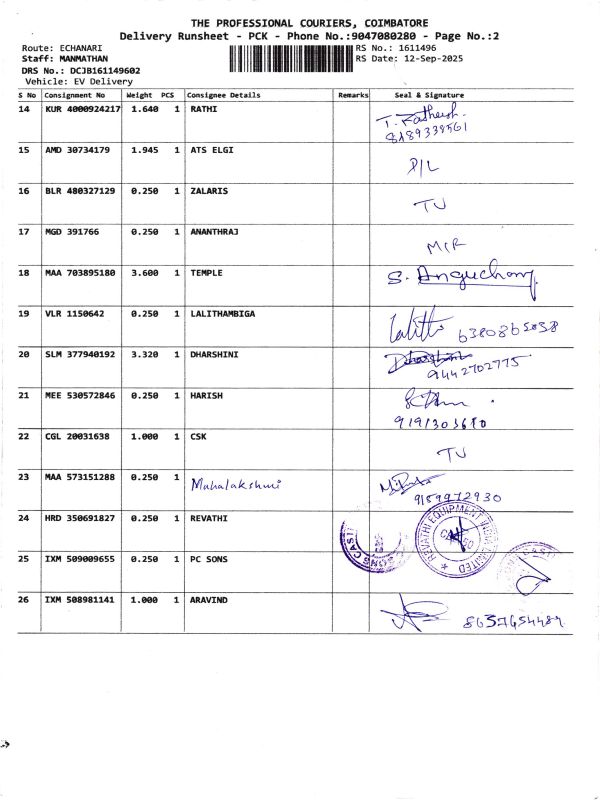 THE PROFESSIONAL COURIERS, COIMBATORE
Delivery Runsheet - PCK - Phone No.:9047080280 - Page No.:2
Route: ECHANARI
RS No.: 1611496
Staff: MANMATHAN
RS Date: 12-Sep-2025
DRS No.: DCJB161149602
Vehicle: EV Delivery
S No Consignment No Weight PCS Consignee Details Remarks Seal & Signature
14 KUR 4000924217 1.640 1 RATHI
15 AMD 30734179 1.945 1 ATS ELGI D/L
16 BLR 480327129 0.250 1 ZALARIS TU
17 MGD 391766 0.250 1 ANANTHRAJ
18 MAA 703895180 3.600 1 TEMPLE S.
19 VLR 1150642 0.250 1 LALITHAMBIGA
20 SLM 377940192 3.320 1 DHARSHINI
9442702775
21 MEE 530572846 0.250 1 HARISH
22 CGL 20031638 1.000 1 CSK TU
23 MAA 573151288 0.250 1 Mahalakshmi
9159972930
24 HRD 350691827 0.250 1 REVATHI REVATHI EQUIPMENT INDIA LIMITED
25 IXM 509009655 0.250 1 PC SONS
26 IXM 508981141 1.000 1 ARAVIND